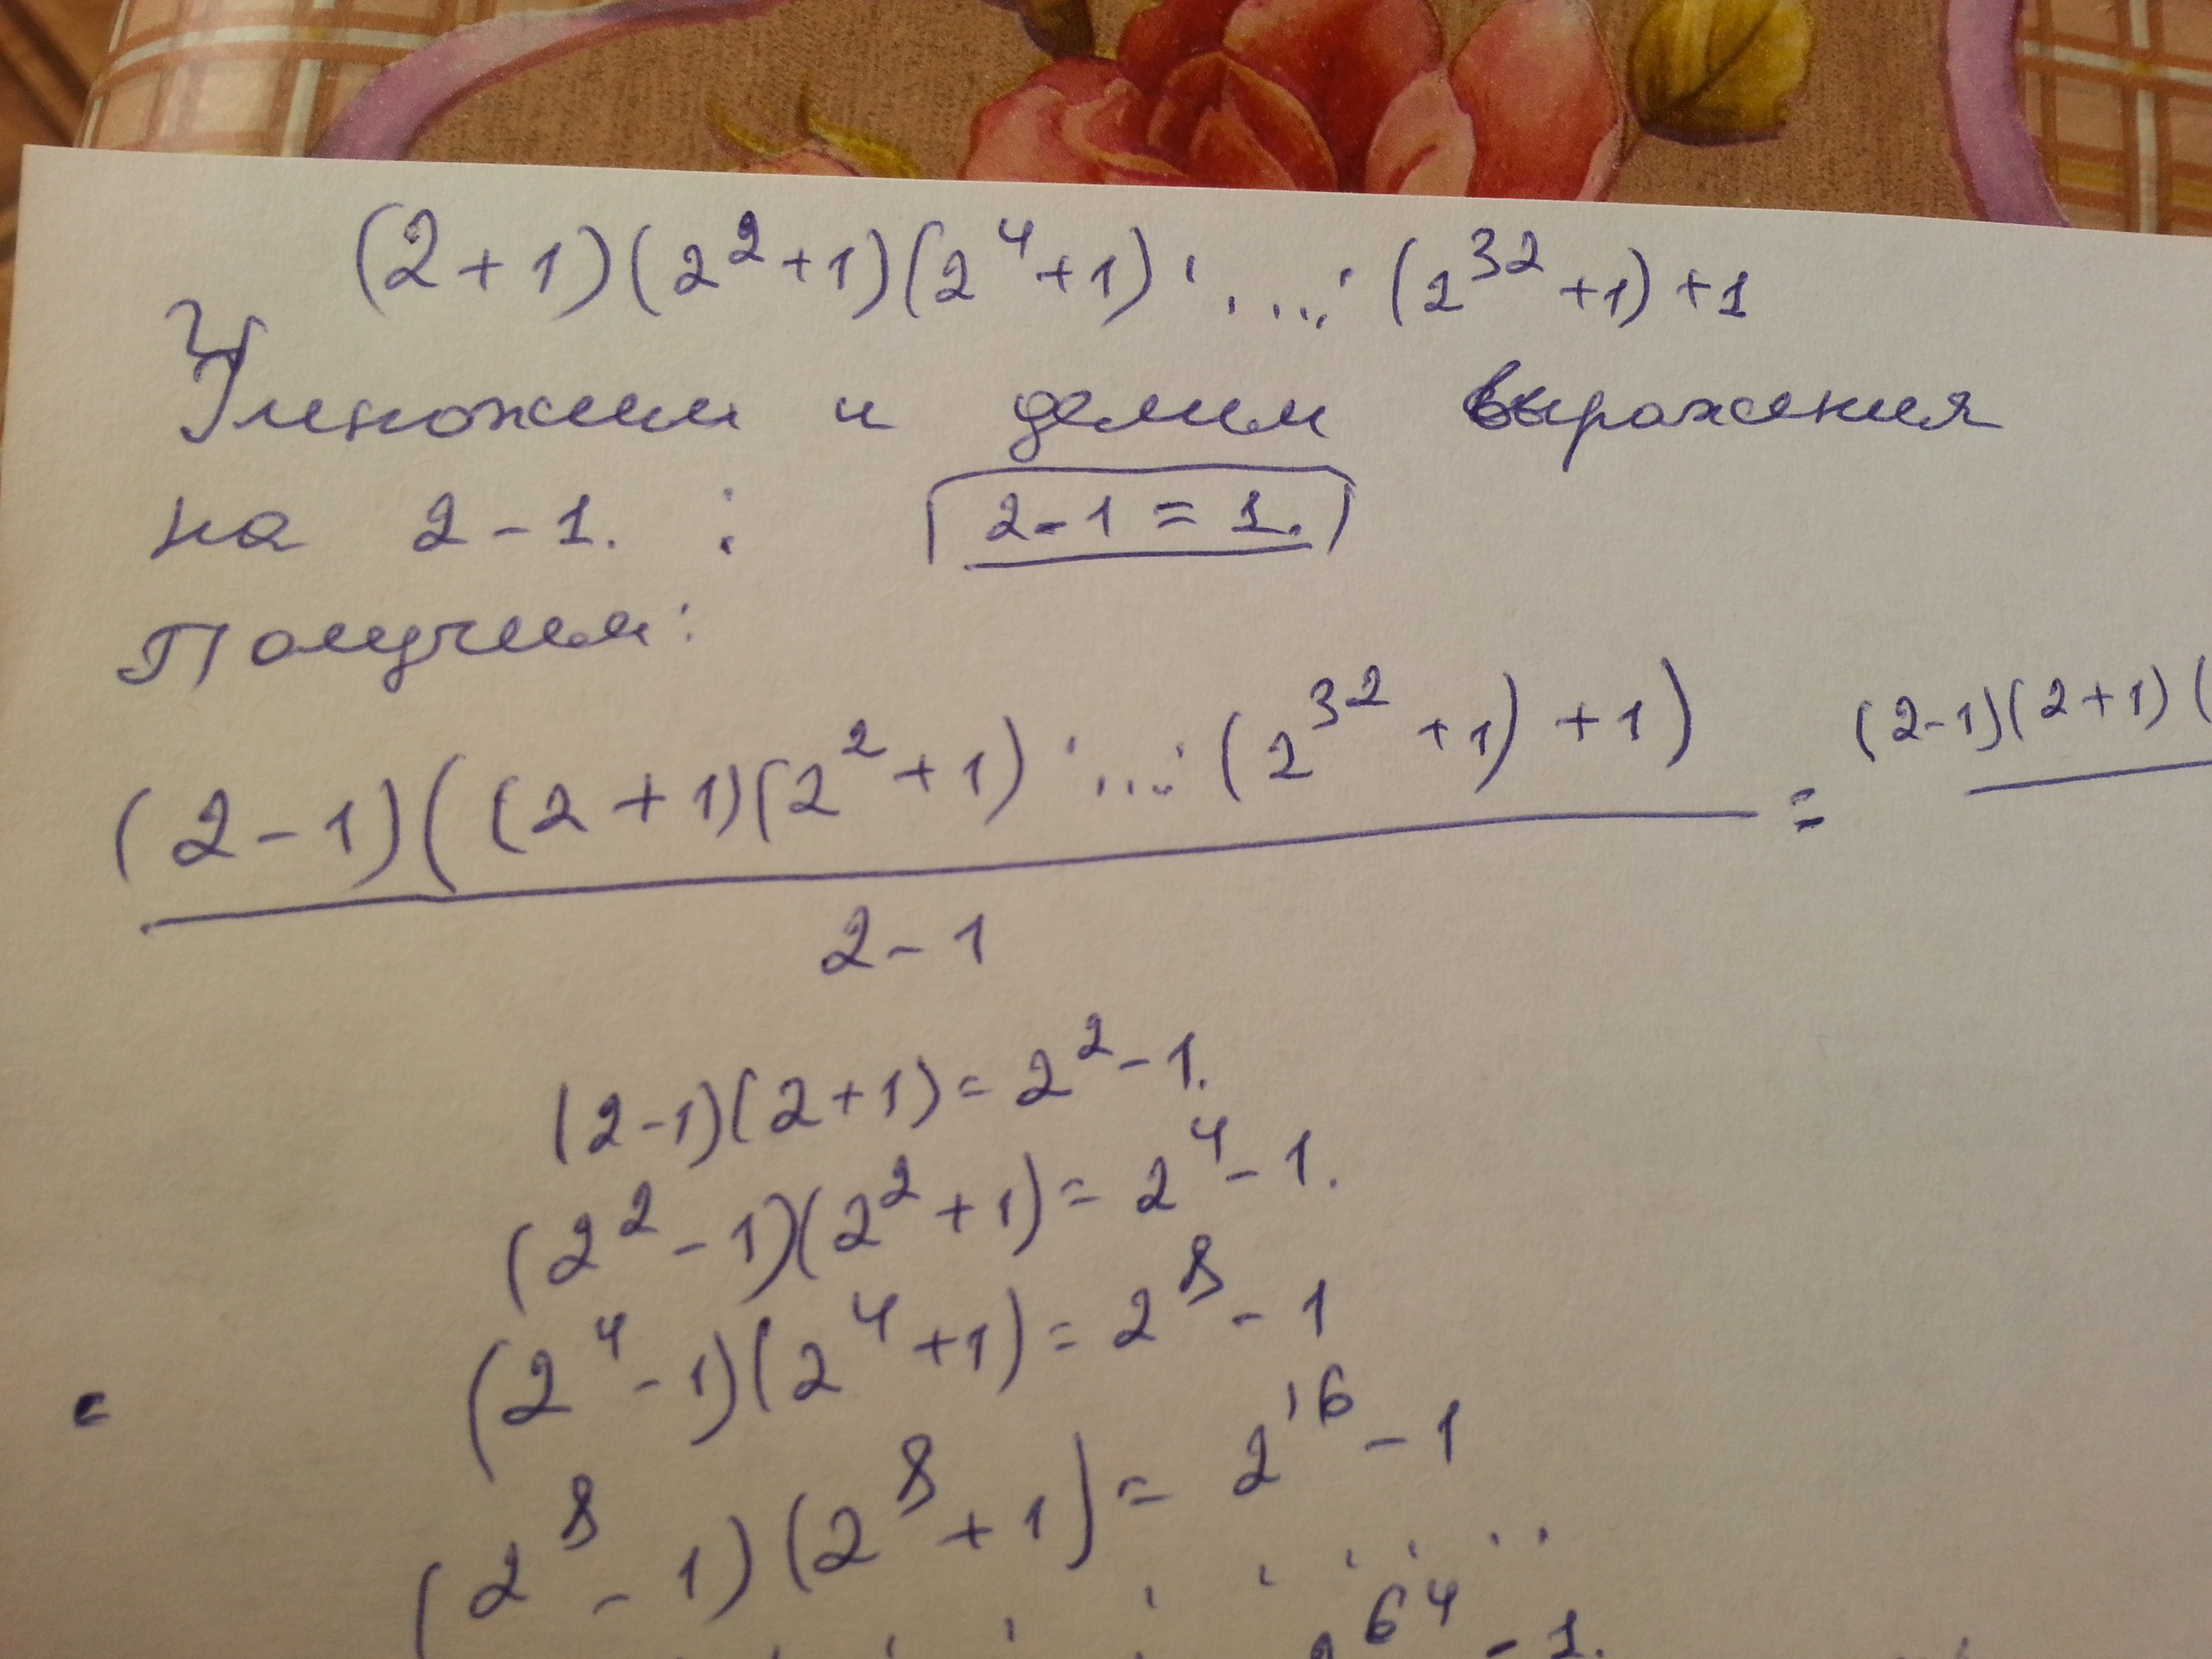 (2+1)(2²+1)(2⁴+1)·...·(2³²+1)+1
Умножим и делим выражения
на 2-1. : 2-1=1.
Получим:
(2-1)((2+1)(2²+1)·...·(2³²+1)+1) = (2-1)(2+1)(
2-1
(2-1)(2+1)=2²-1.
(2²-1)(2²+1)=2⁴-1.
(2⁴-1)(2⁴+1)=2⁸-1
(2⁸-1)(2⁸+1)=2¹⁶-1
. . . . . . . . .
2⁶⁴-1.